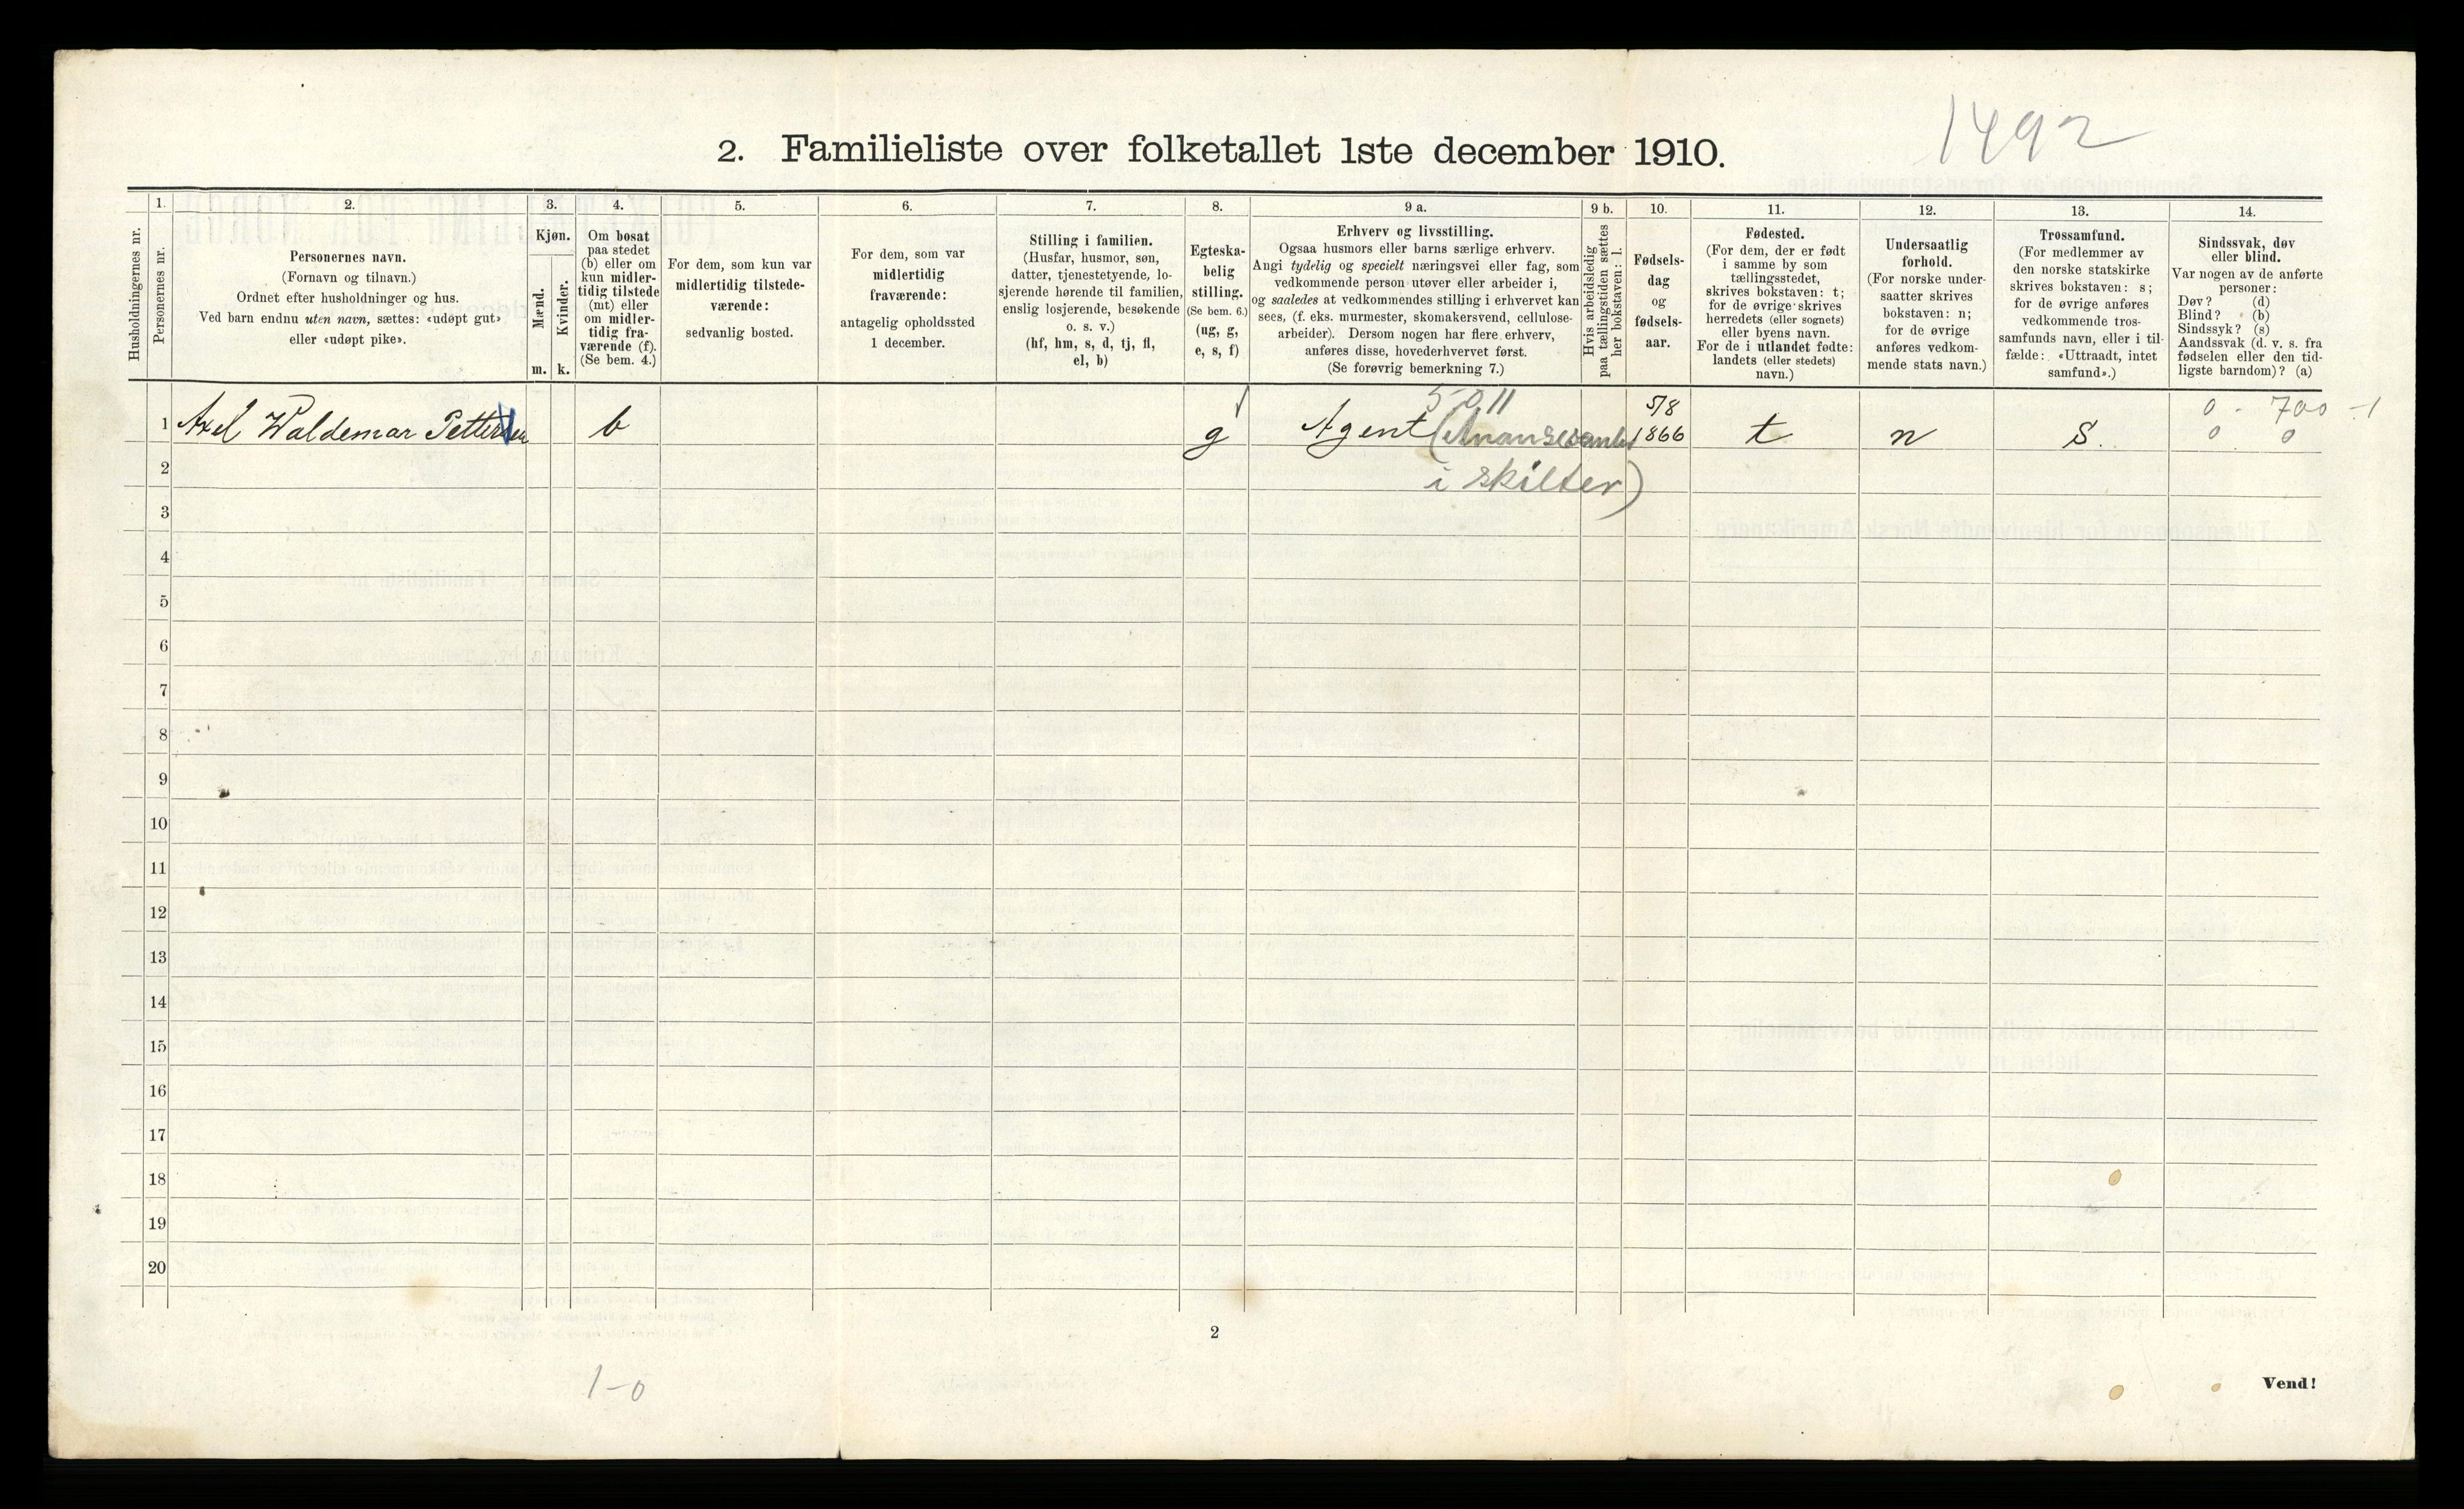 1492
2. Familieliste over folketallet 1ste december 1910.
Husholdningernes nr.
1.
Personernes nr.
2.
Personernes navn.
(Fornavn og tilnavn.)
Ordnet efter husholdninger og hus.
Ved barn endnu uten navn, sættes: «udøpt gut»
eller «udøpt pike».
3.
Kjøn.
Mænd.
Kvinder.
m.
k.
4.
Om bosat
paa stedet
(b) eller om
kun midler-
tidig tilstede
(mt) eller
om midler-
tidig fra-
værende (f).
(Se bem. 4.)
5.
For dem, som kun var
midlertidig tilstede-
værende:
sedvanlig bosted.
6.
For dem, som var
midlertidig
fraværende:
antagelig opholdssted
1 december.
7.
Stilling i familien.
(Husfar, husmor, søn,
datter, tjenestetyende, lo-
sjerende hørende til familien,
enslig losjerende, besøkende
o. s. v.)
(hf, hm, s, d, tj, fl,
el, b)
8.
Egteska-
belig
stilling.
(Se bem. 6.)
(ug, g,
e, s, f)
9 a.
Erhverv og livsstilling.
Ogsaa husmors eller barns særlige erhverv.
Angi tydelig og specielt næringsvei eller fag, som
vedkommende person utøver eller arbeider i,
og saaledes at vedkommendes stilling i erhvervet kan
sees, (f. eks. murmester, skomakersvend, cellulose-
arbeider). Dersom nogen har flere erhverv,
anføres disse, hovederhvervet først.
(Se forøvrig bemerkning 7.)
9 b.
Hvis arbeidsledig
paa tællingstiden sættes
her bokstaven: l.
10.
Fødsels-
dag
og
fødsels-
aar.
11.
Fødested.
(For dem, der er født
i samme by som
tællingsstedet,
skrives bokstaven: t;
for de øvrige skrives
herredets (eller sognets)
eller byens navn.
For de i utlandet fødte:
landets (eller stedets)
navn.)
12.
Undersaatlig
forhold.
(For norske under-
saatter skrives
bokstaven: n;
for de øvrige
anføres vedkom-
mende stats navn.)
13.
Trossamfund.
(For medlemmer av
den norske statskirke
skrives bokstaven: s;
for de øvrige anføres
vedkommende tros-
samfunds navn, eller i til-
fælde: «Uttraadt, intet
samfund».)
14.
Sindssvak, døv
eller blind.
Var nogen av de anførte
personer:
Døv? (d)
Blind? (b)
Sindssyk? (s)
Aandssvak (d. v. s. fra
fødselen eller den tid-
ligste barndom)? (a)
5011
5/8
0 - 700 -1
1 Axel Waldemar Pettersen b g Agent 1866 t n s. 0 0
i skilter)
2
3
4
5
6
7
8
9
10
11
12
13
14
15
16
17
18
19
20
2
1-0
Vend!